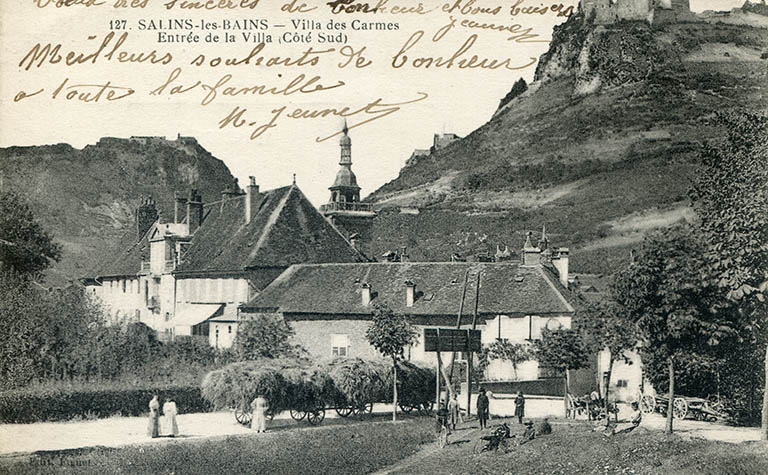 Vœux très sincères de bonheur et bons baisers
Jeunet
127. SALINS-les-BAINS — Villa des Carmes
Entrée de la Villa (Côté Sud)
Meilleurs souhaits de bonheur
à toute la famille
M. Jeunet